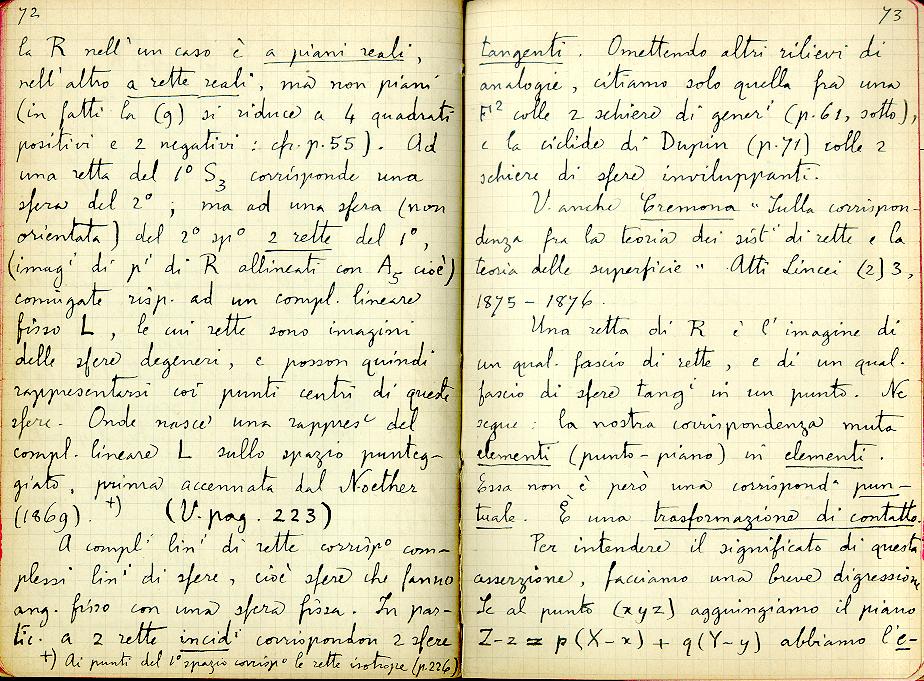 72
la R nell'un caso è a piani reali,
nell'altro a rette reali, ma non piani
(in fatti la (9) si riduce a 4 quadrati
positivi e 2 negativi: cfr. p. 55). Ad
una retta del 1° S3 corrisponde una
sfera del 2°; ma ad una sfera (non
orientata) del 2° sp° 2 rette del 1°,
(imagi di pi di R allineati con A5 cioè)
coniugate risp. ad un compl. lineare
fisso L, le cui rette sono imagini
delle sfere degeneri, e posson quindi
rappresentarsi coi punti centri di queste
sfere. Onde nasce una rappres.e del
compl. lineare L sullo spazio punteg-
giato, prima accennata dal Noether
(1869). +) (V. pag. 223)
A compli lini di rette corrispo com-
plessi lini di sfere, cioè sfere che fanno
ang. fisso con una sfera fissa. In par-
tic. a 2 rette incidi corrispondon 2 sfere
+) Ai punti del 1° spazio corrispo le rette isotrope (p. 226)
73
tangenti. Omettendo altri rilievi di
analogie, citiamo solo quella fra una
F² colle 2 schiere di generi (p. 61, sotto),
e la ciclide di Dupin (p. 71) colle 2
schiere di sfere inviluppanti.
V. anche Cremona "Sulla corrispon-
denza fra la teoria dei sisti di rette e la
teoria delle superficie" Atti Lincei (2) 3,
1875-1876.
Una retta di R è l'imagine di
un qual. fascio di rette, e di un qual.
fascio di sfere tangi in un punto. Ne
segue: la nostra corrispondenza muta
elementi (punto-piano) in elementi.
Essa non è però una corrisponda pun-
tuale. È una trasformazione di contatto.
Per intendere il significato di questa
asserzione, facciamo una breve digressione
Se al punto (xyz) aggiungiamo il piano
Z-z = p(X-x) + q(Y-y) abbiamo l'e-